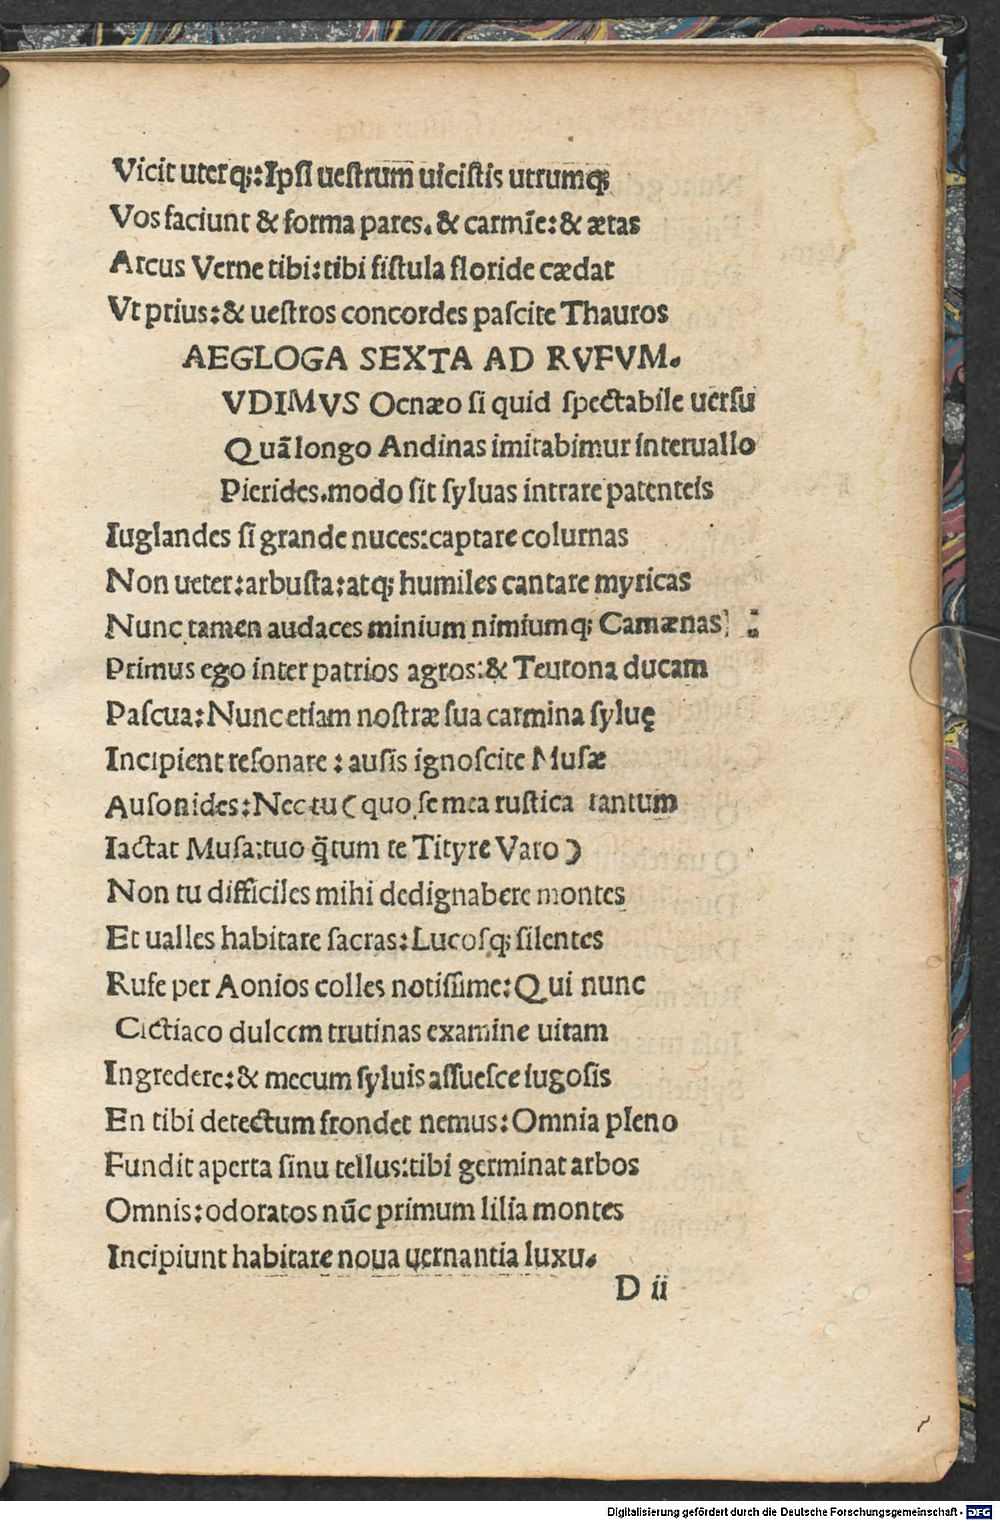 Vicit uterq;:Ipſi ueſtrum uiciſtis utrumq;
Vos faciunt & forma pares. & carmīe: & ætas
Arcus Verne tibi: tibi fiſtula floride cædat
Vt prius: & ueſtros concordes paſcite Thauros
AEGLOGA SEXTA AD RVFVM.
VDIMVS Ocnæo ſi quid ſpectabile uerſu
Quā longo Andinas imitabimur interuallo
Pierides. modo ſit ſyluas intrare patenteis
Iuglandes ſi grande nuces: captare colurnas
Non ueter: arbuſta: atq; humiles cantare myricas
Nunc tamen audaces minium nimiumq; Camænas :
Primus ego inter patrios agros: & Teutona ducam
Paſcua: Nunc etiam noſtræ ſua carmina ſyluę
Incipient reſonare : auſis ignoſcite Muſæ
Auſonides: Nec tu ( quo ſe mea ruſtica tantum
Iactat Muſa: tuo q̃tum te Tityre Varo )
Non tu difficiles mihi dedignabere montes
Et ualles habitare ſacras: Lucoſq; ſilentes
Rufe per Aonios colles notiſſime: Qui nunc
Cictiaco dulcem trutinas examine uitam
Ingredere: & mecum ſyluis aſſueſce iugoſis
En tibi detectum frondet nemus: Omnia pleno
Fundit aperta ſinu tellus: tibi germinat arbos
Omnis: odoratos nūc primum lilia montes
Incipiunt habitare noua uernantia luxu.
D ii
Digitalisierung gefördert durch die Deutsche Forschungsgemeinschaft - DFG